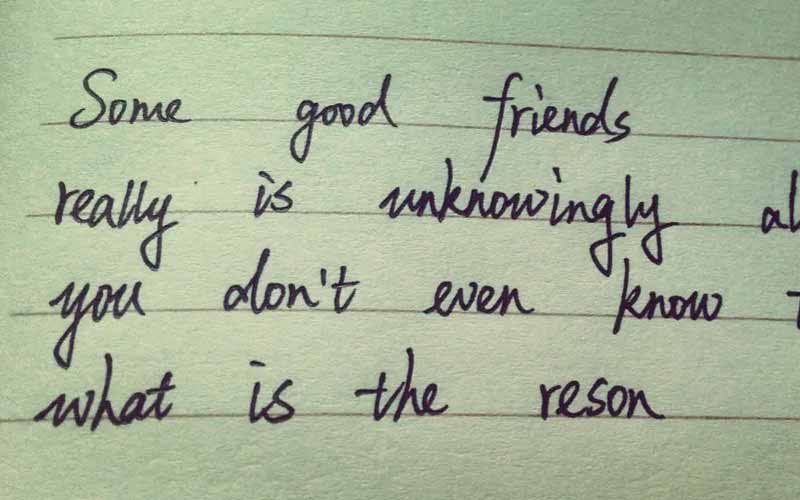 Some good friends
really is unknowingly
you don't even know
what is the reson